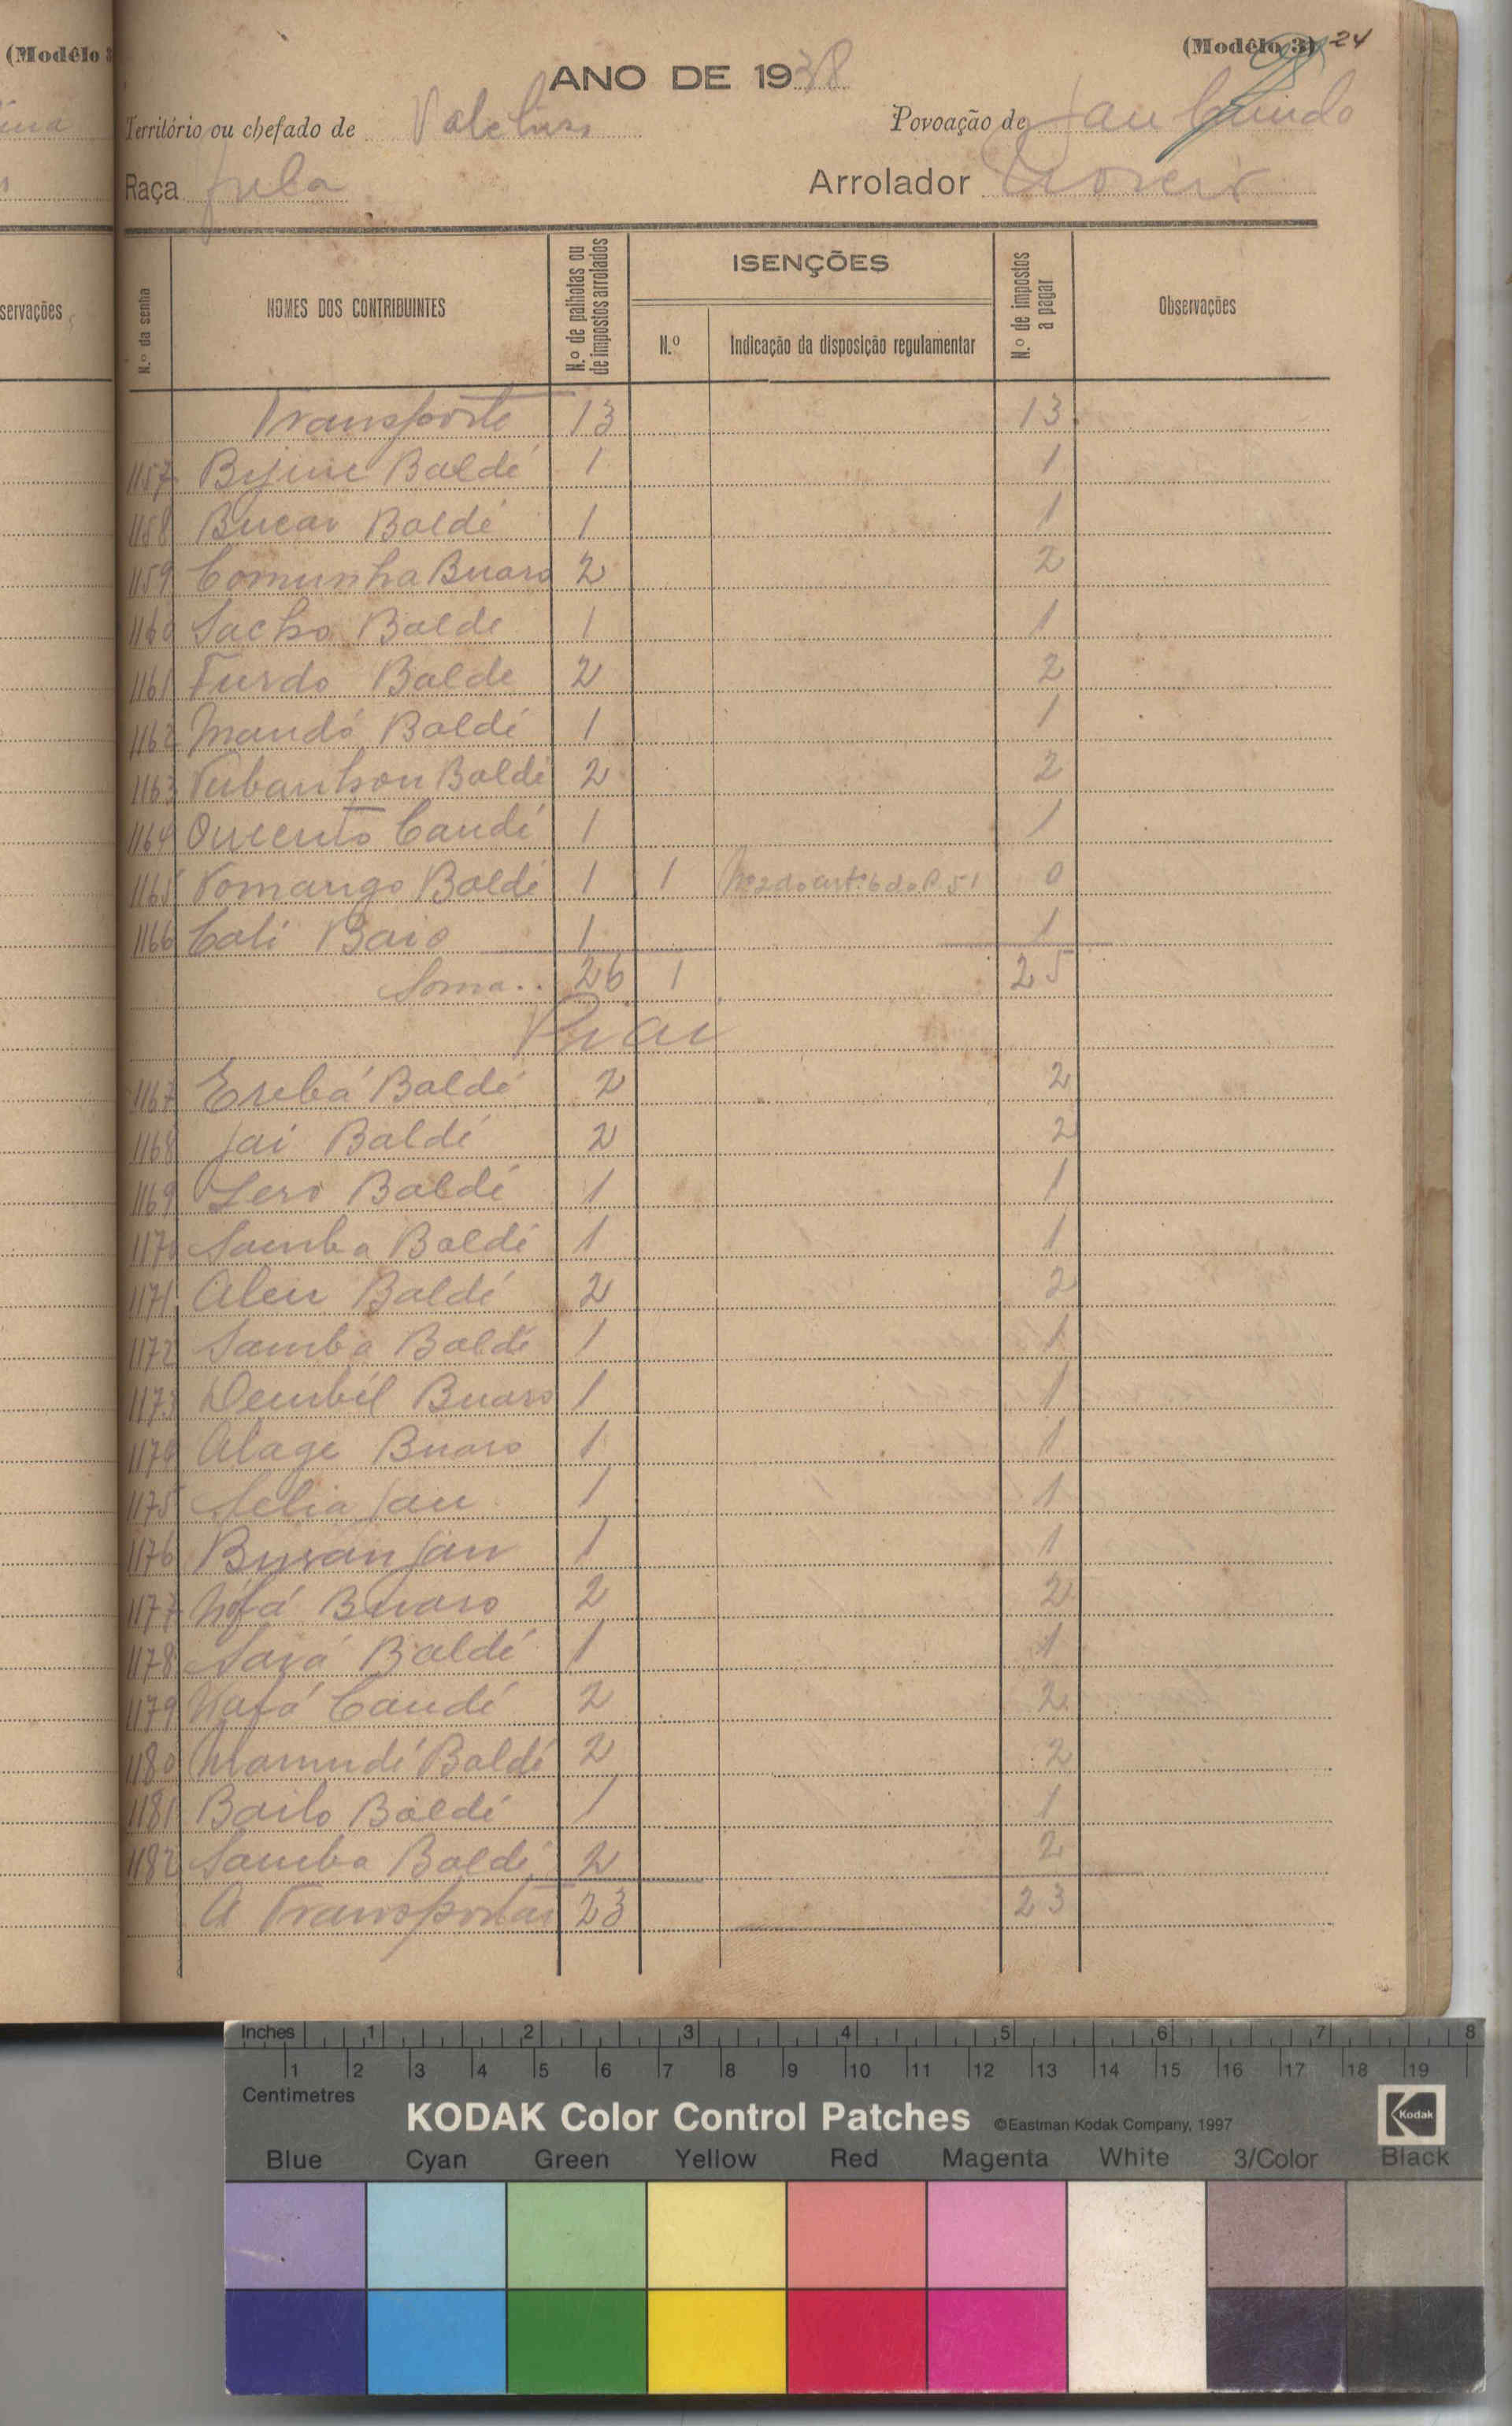 (Modêlo 3) 24
ANO DE 1938
Território ou chefado de Povoação de
Raça Fula Arrolador
N.º da senha NOMES DOS CONTRIBUINTES N.º de palhotas ou de impostos arrolados ISENÇÕES N.º Indicação da disposição regulamentar N.º de impostos a pagar Observações
servações
(Modêlo
Transporte 13 13
1157 Baldé 1 1
1158 Bucar Baldé 1 1
1159 Comunha Buaro 2 2
1160 Sacho Balde 1 1
1161 Turdo Balde 2 2
1162 Mandó Baldé 1 1
1163 Baldé 2 2
1164 Candé 1 1
1165 Baldé 1 1 Nº 2 do artº 6 do R. 51 0
1166 Cali Baio 1 1
Soma.. 26 1 25
1167 Erebá Baldé 2 2
1168 Jai Baldé 2 2
1169 Sero Baldé 1 1
1170 Samba Baldé 1 1
1171 Baldé 2 2
1172 Samba Baldé 1 1
1173 Dembél Buaro 1 1
1174 Alage Buaro 1 1
1175 Selia Jau 1 1
1176 Jau 1 1
1177 Buaro 2 2
1178 Baldé 1 1
1179 Candé 2 2
1180 Mamudé Baldé 2 2
1181 Bailo Baldé 1 1
1182 Samba Baldé 2 2
A Transportar 23 23
Inches 1 2 3 4 5 6 7 8
1 2 3 4 5 6 7 8 9 10 11 12 13 14 15 16 17 18 19
Centimetres
KODAK Color Control Patches ©Eastman Kodak Company, 1997 Kodak
Blue Cyan Green Yellow Red Magenta White 3/Color Black